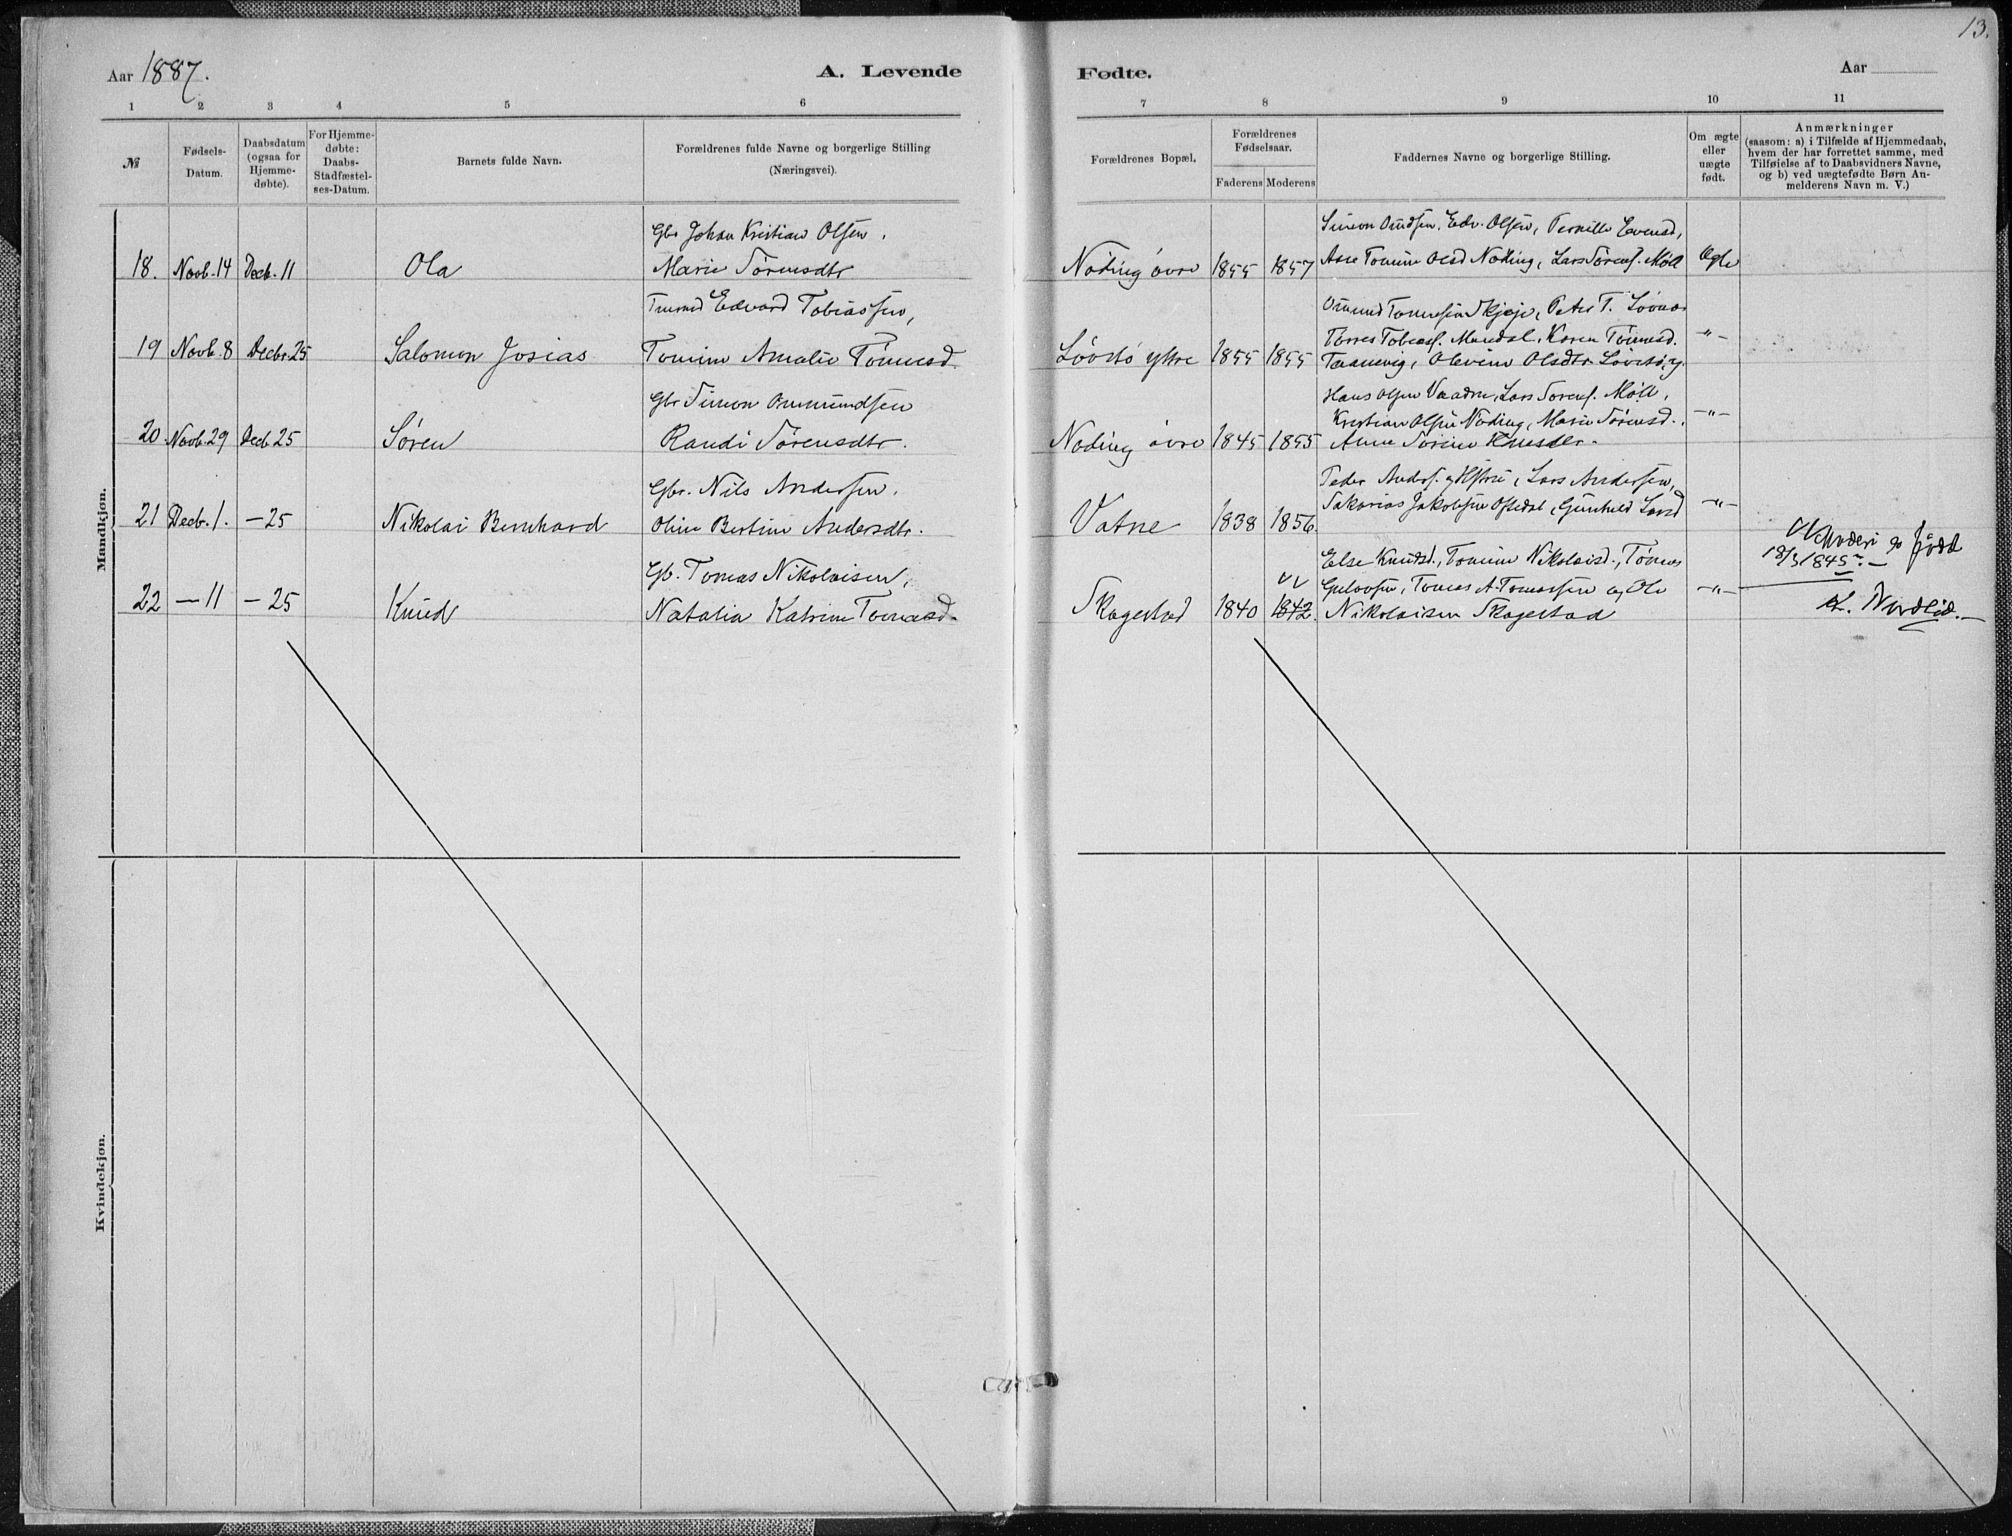 13.
Aar 1887. A. Levende Fødte. Aar
1 2 3 4 5 6 7 8 9 10 11
№
Fødsels-
Datum.
Daabsdatum
(ogsaa for
Hjemme-
døbte).
For Hjemme-
døbte:
Daabs-
Stadfæstel-
ses-Datum.
Barnets fulde Navn.
Forældrenes fulde Navne og borgerlige Stilling
(Næringsvei).
Forældrenes Bopæl.
Forældrenes
Fødselsaar.
Faderens Moderens
Faddernes Navne og borgerlige Stilling.
Om ægte
eller
uægte
født.
Anmærkninger
(saasom: a) i Tilfælde af Hjemmedaab,
hvem der har forrettet samme, med
Tilføielse af to Daabsvidners Navne,
og b) ved uægtefødte Børn An-
melderens Navn m. V.)
Mandkjøn.
Gbr Johan Kristian Olsen,
Simon Omdsen, Edv. Olsen, Pernille Evensd,
18. Novb. 14 Decb. 11 Ola Marie Sørensdtr Noding øvre 1855 1857 Ane Tomine Olsd Noding, Lars Sørens. Møll Ægte
Edvard Tobiassen,
Tomessen Skjeje, Peter T.
19 Novb. 8 Decbr. 25 Salomon Josias Tomine Amalie Tønnesd. Løvstø ytre 1855 1855 Tobias. Mandal, Karen Tønnesd. -"-
Olevine Olsdtr Løvstø, y.
Gbr Simon Ommundsen
Hans Olsen Vaadne, Lars Sørens. Møll,
Kristian Olsen Noding, Marie Sørensd., -"-
20 Novb. 29 Decb. 25 Søren Randi Sørensdtr. Noding øvre 1845 1855 Anne Sorine
Gbr. Nils Andersen,
Peder Anders. Lars Andersen,
21 Decb. 1. - 25 Nikolai Bernhard Oline Bertine Andersdtr. Vatne 1838 1856. Sakarias Jakobsen Ofstdal, Gunhild Larsd -"-
Moderen født
18/3 1845.
Gb. Tomas Nikolaisen,
Else Knudsd., Tomine Nikolaisd., Tønnes
Tomas A. Tomassen og Ole -"-
22 - 11 - 25 Knud Natalia Katrine Tomasd. Skagestad 1840 1842. Nikolaisen Skagestad
Kvindekjøn.